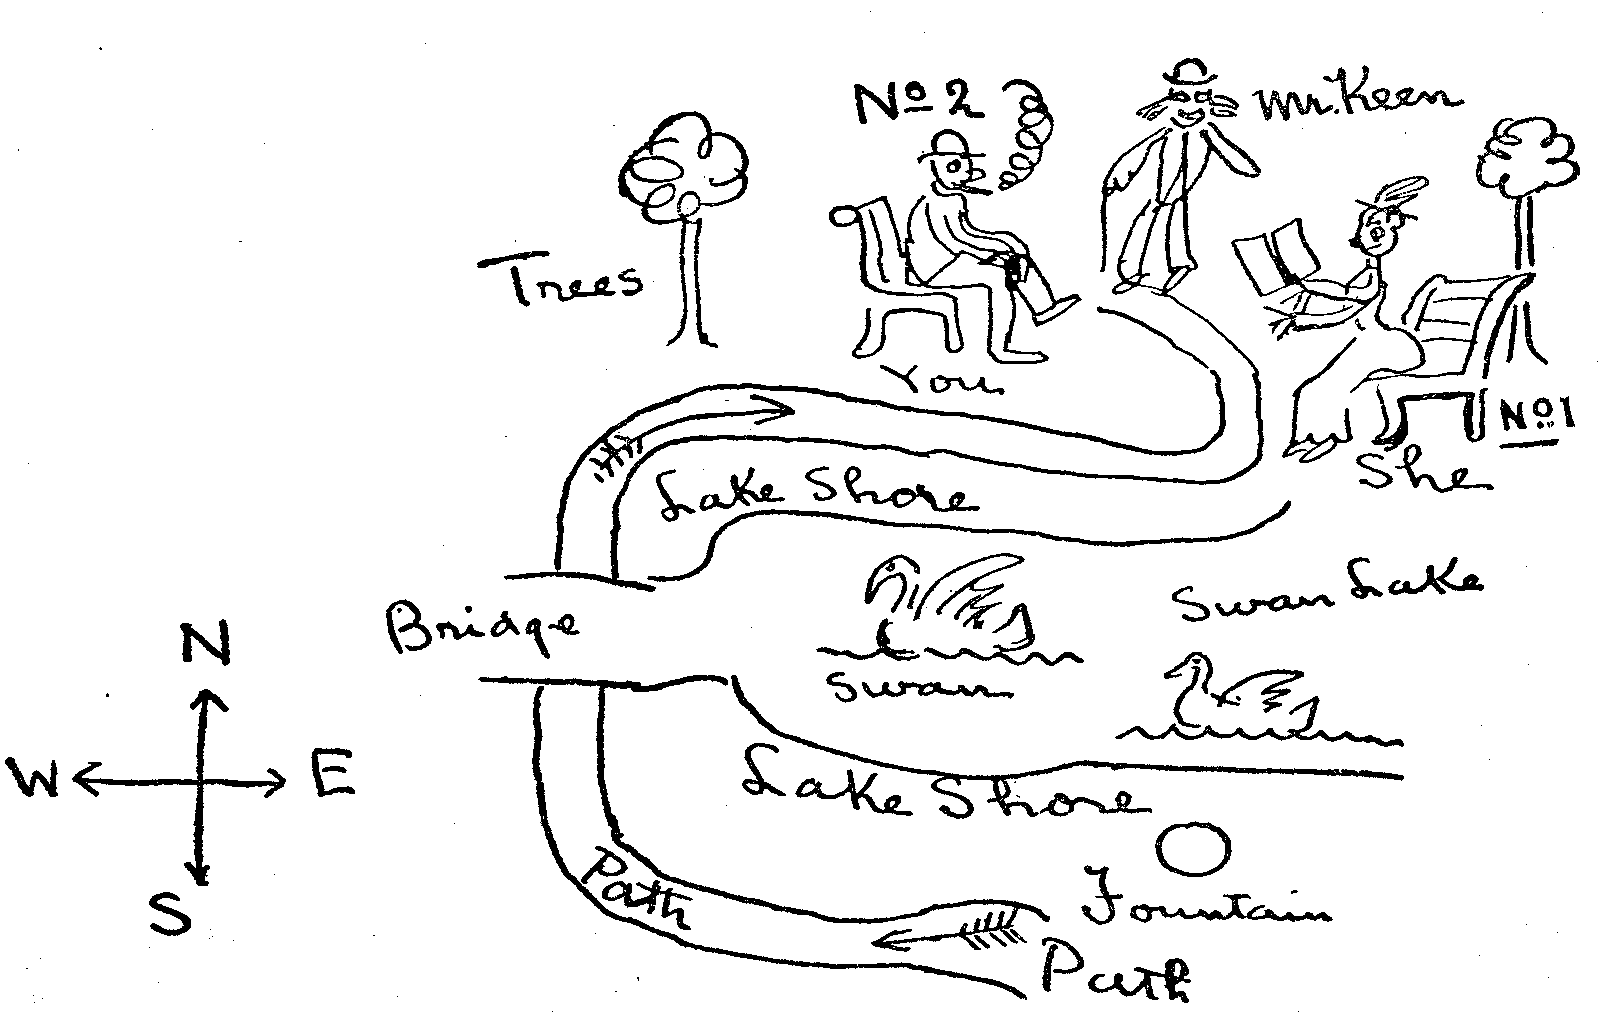 No 2
Mr. Keen
Trees
You
No 1
She
Lake Shore
Swan Lake
Bridge
Swan
N
W E
S
Lake Shore
Path
Fountain
Path